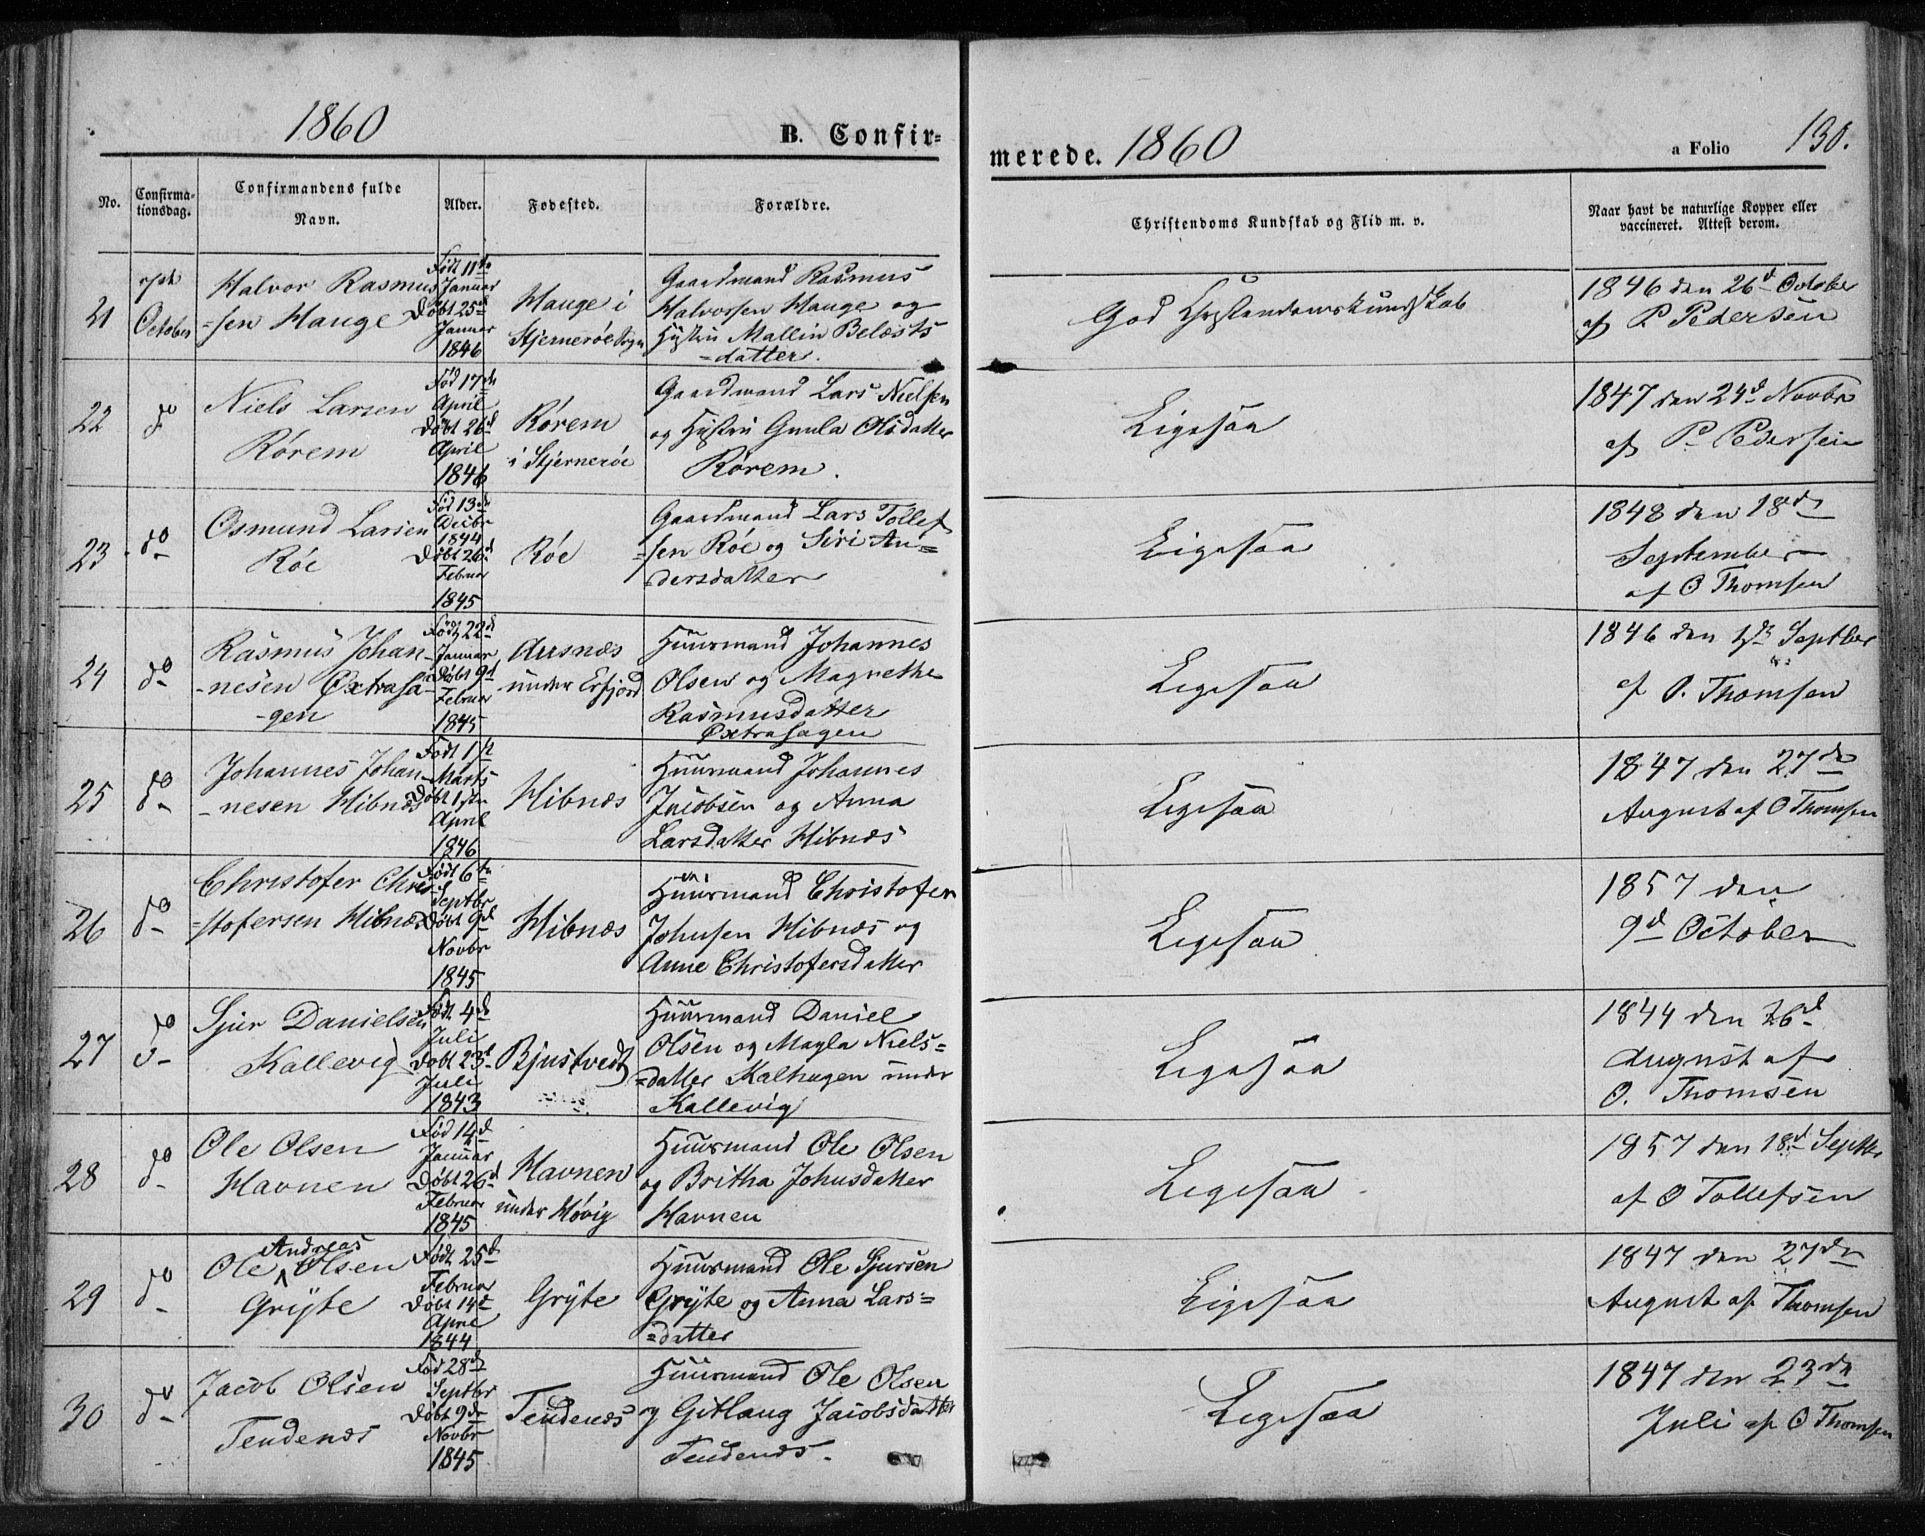 1860
B. Confir=
merede. 1860
a Folio
130.
No.
Confirma-
tionsdag.
Confirmandens fulde
Navn.
Alder.
Fødested.
Forældre.
Christendoms Kundskab og Flid m. v.
Naar havt de naturlige Kopper eller
vaccineret. Attest derom.
21
October
Halvor Rasmus
=sen Hauge
Født 11te
Januar
Døbt 25d
Januar
1846
Hauge i
Stjernerøe Sogn
Gaardmand Rasmus
Halvorsen Hauge og
Hustru Mallin Belæsts
=datter.
God Christendomskundskab
1846 den 26d October
af P. Pedersen
22
do
Niels Larsen
Rørem
Fød 17de
April
Døbt 26d
April
1846
Rørem
i Stjernerøe
Gaardmand Lars Nielsen
og Hustru Gunla Olsdatter
Rørem.
Ligesaa
1847 den 24d Novbr
af P. Pedersen
23
do
Osmund Larsen
Røe
Fød 13d
Decbr
1844
Døbt 26d
Februar
1845
Røe
Gaardmand Lars Tollef
=sen Røe og Siri An=
=dersdatter
Ligesaa
1848 den 18de
September
af O Thomsen
24
do
Rasmus Johan-
-nesen Øxtrasa-
-gen
Født 22d
Januar
Døbt 9d
Februar
1845
Aasnæs
under Erfjord
Huusmand Johannes
Olsen og Magrethe
Rasmusdatter
Øxtrasagen
Ligesaa
1846 den Septber
af O. Thomsen
25
do
Johannes Johan-
-nesen Hibnæs
Født 1ste
Marts
Døbt 1ste
April
1846
Hibnæs
Huusmand Johannes
Jacobsen og Anna
Larsdatter Hibnæs
Ligesaa
1847 den 27de
August af O Thomsen
26
do
Christofer Chri-
=stofersen Hibnæs
Født 6te
Septbr
Døbt 9d
Novbr
1845
Hibnæs
Huusmand Christofer
Johnsen Hibnæs og
Anne Christofersdatter
Ligesaa
1857 den
9d October
27
do
Sjur Danielsen
Kallevig
Født 4d
Juli
Døbt 23d
Juli
1843
Bjustvedt
Huusmand Daniel
Olsen og Magla Niels=
=datter Kalhagen under
Kallevig
Ligesaa
1844 den 26d
August af
O. Thomsen
28
do
Ole Olsen
Havnen
Fød 14d
Januar
Døbt 26d
Februar
1845
Havnen
under Høvig
Huusmand Ole Olsen
og Britha Johnsdatter
Havnen
Ligesaa
1857 den 18d Septbr
af O Tollefsen
29
do
Andreas
Ole Olsen
Grÿte
Født 25d
Februar
Døbt 14d
April
1844
Grÿte
Huusmand Ole Sjursen
Grÿte og Anna Lars=
=datter
Ligesaa
1847 den 27de
August af Thomsen
30
do
Jacob Olsen
Tendenæs
Fød 28d
Septbr
Døbt 9de
Novbr
1845
Tendenæs
Huusmand Ole Olsen
og Gitlaug Jacobsdatter
Tendenæs.
Ligesaa
1847 den 23de
Juli af O Thomsen